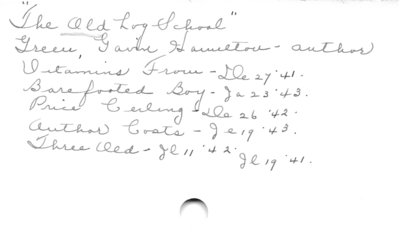 "The Old Log School"
Green, Gavin Hamilton - author
Vitamins From - De 27 '41.
Barefooted Boy - Ja 23 '43.
Price Ceiling - De 26 '42.
Author Costs - Je 19 '43.
Three Old - Jl 11 '42.
Jl 19 '41.